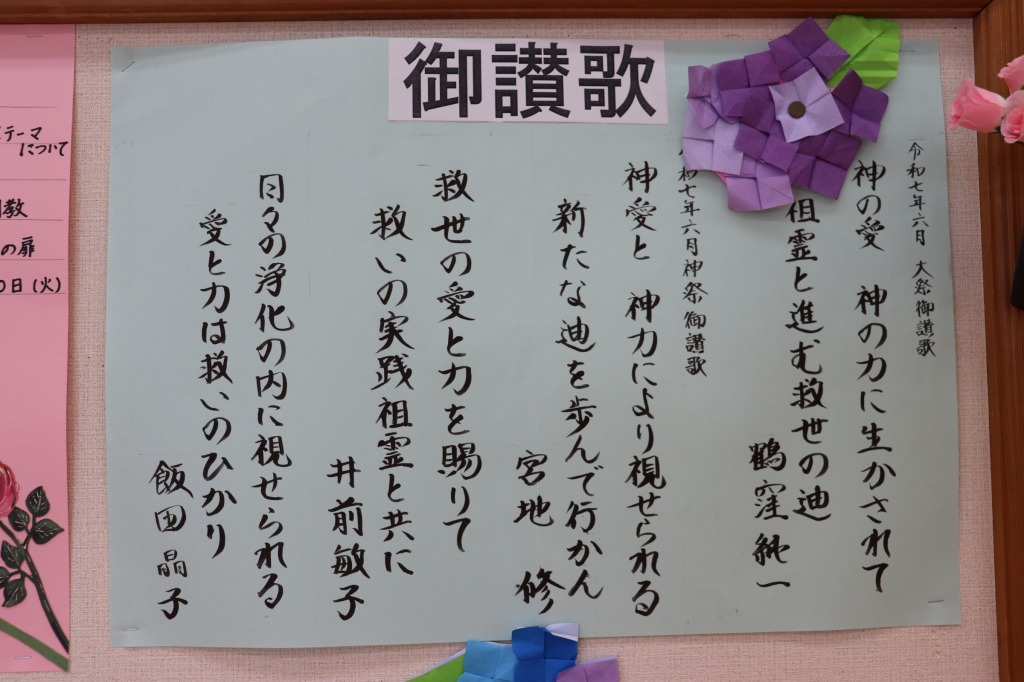 御讃歌
令和七年六月 大祭御讃歌
神の愛 神の力に生かされて
祖霊と進む救世の迪
鶴窪純一
和七年六月神祭御讃歌
神愛と 神力により視せられる
新たな迪を歩んで行かん
宮地 修
救世の愛と力を賜りて
救いの実践祖霊と共に
井前敏子
日々の浄化の内に視せられる
愛と力は救いのひかり
飯田晶子
テーマ
について
教
の扉
0日(火)